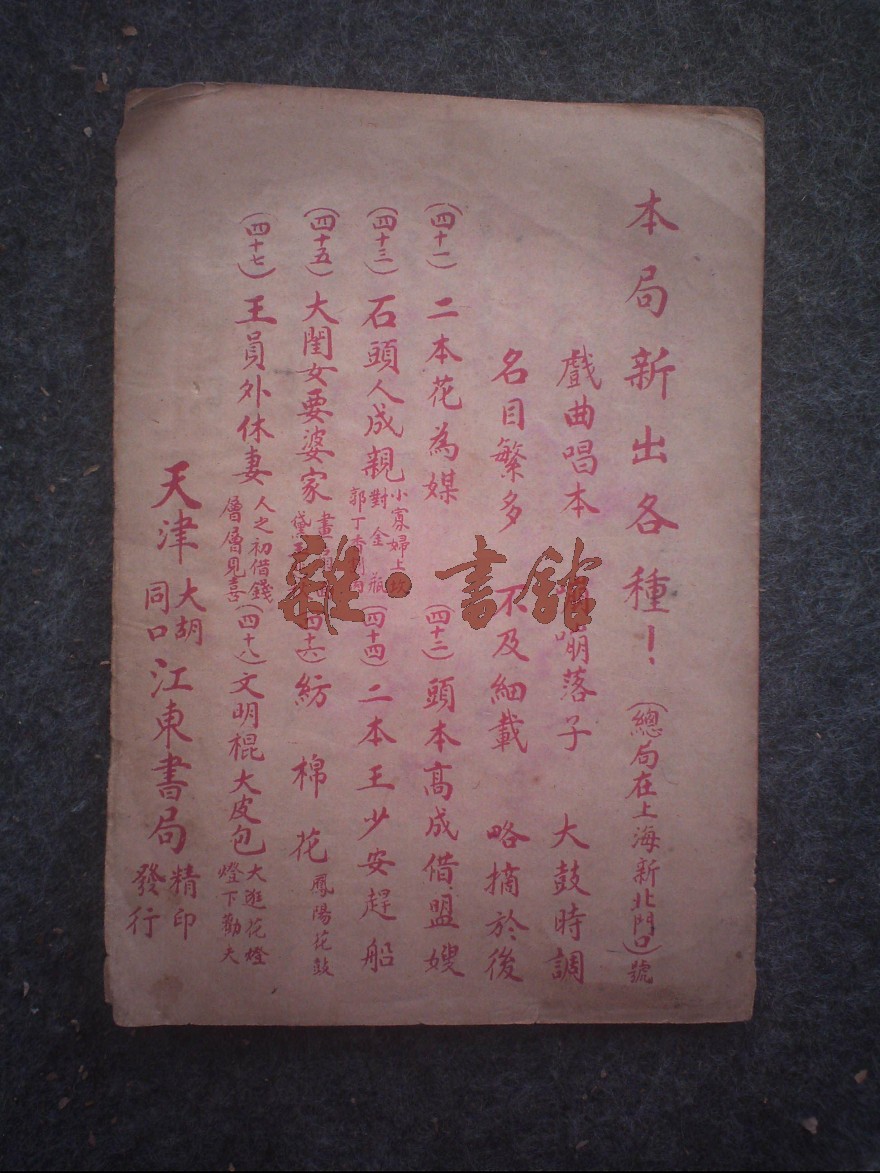 本局新出各種！（總局在上海新北門口）號
戲曲唱本 嘣落子 大鼓時調
名目繁多 不及細載 略摘於後
（四十一）二本花為媒 （四十二）頭本高成借盟嫂
（四十三）石頭人成親 小寡婦上坟 對金瓶 郭丁香 （四十四）二本王少安趕船
（四十五）大閨女要婆家 畫 黛玉 （四十六）紡棉花 鳳陽花鼓
（四十七）王員外休妻 人之初借錢 層層見喜 （四十八）文明棍大皮包 大逛花燈 燈下勸夫
天津 大胡同口 江東書局 精印發行
雜·書館